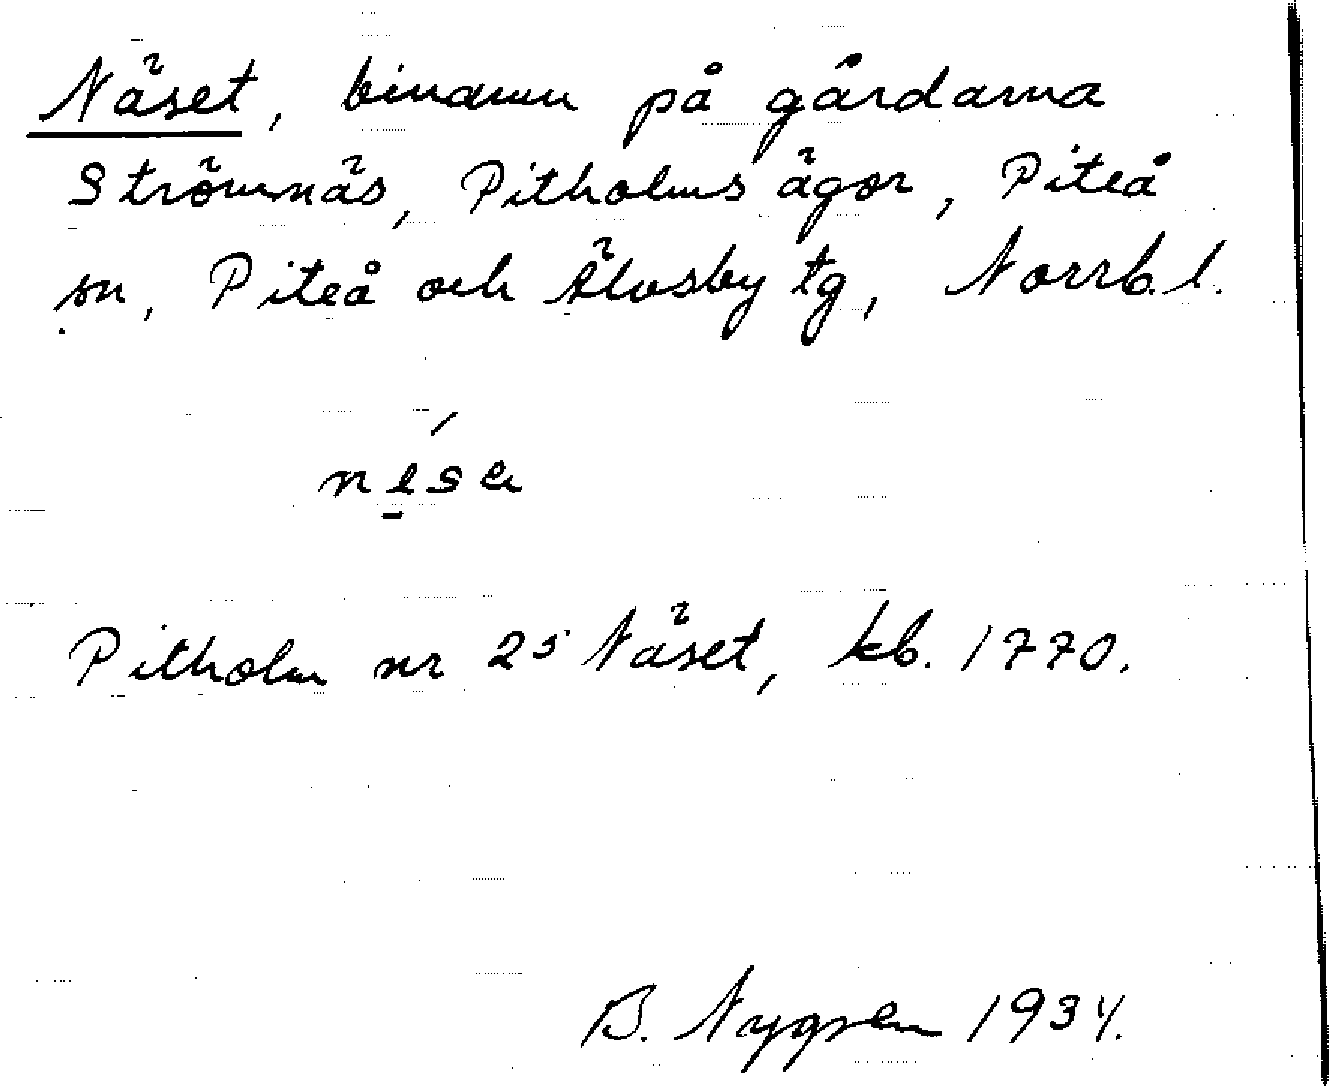 Näset, binamn på gårdarna
Strömnäs, Pitholms ägor, Piteå
sn, Piteå och Älvsby tg, Norrb. l.
Pitholm nr 25 Näset, kb. 1770.
B. Nygren 1934.